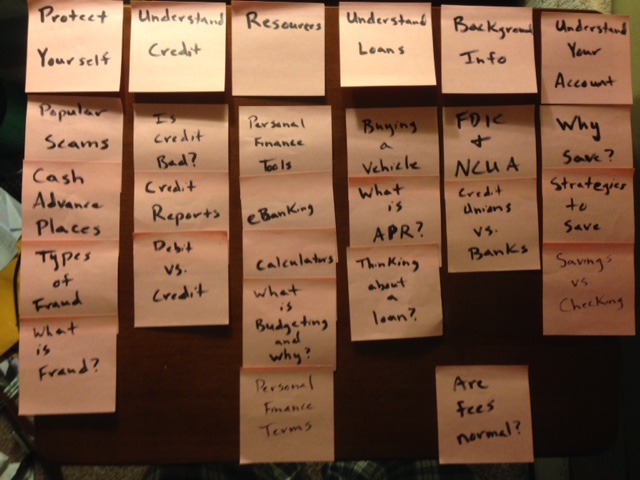 Protect
Yourself
Popular
Scams
Cash
Advance
Places
Types
of
Fraud
What
is
Fraud?
Understand
Credit
Is
Credit
Bad?
Credit
Reports
Debit
vs.
Credit
Resources
Personal
Finance
Tools
eBanking
Calculators
What is
Budgeting
and
Why?
Personal
Finance
Terms
Understand
Loans
Buying
a
Vehicle
What
is
APR?
Thinking
about
a
loan?
Background
Info
FDIC
&
NCUA
Credit
Unions
vs.
Banks
Are
fees
normal?
Understand
Your
Account
Why
Save?
Strategies
to
Save
Savings
vs
Checking